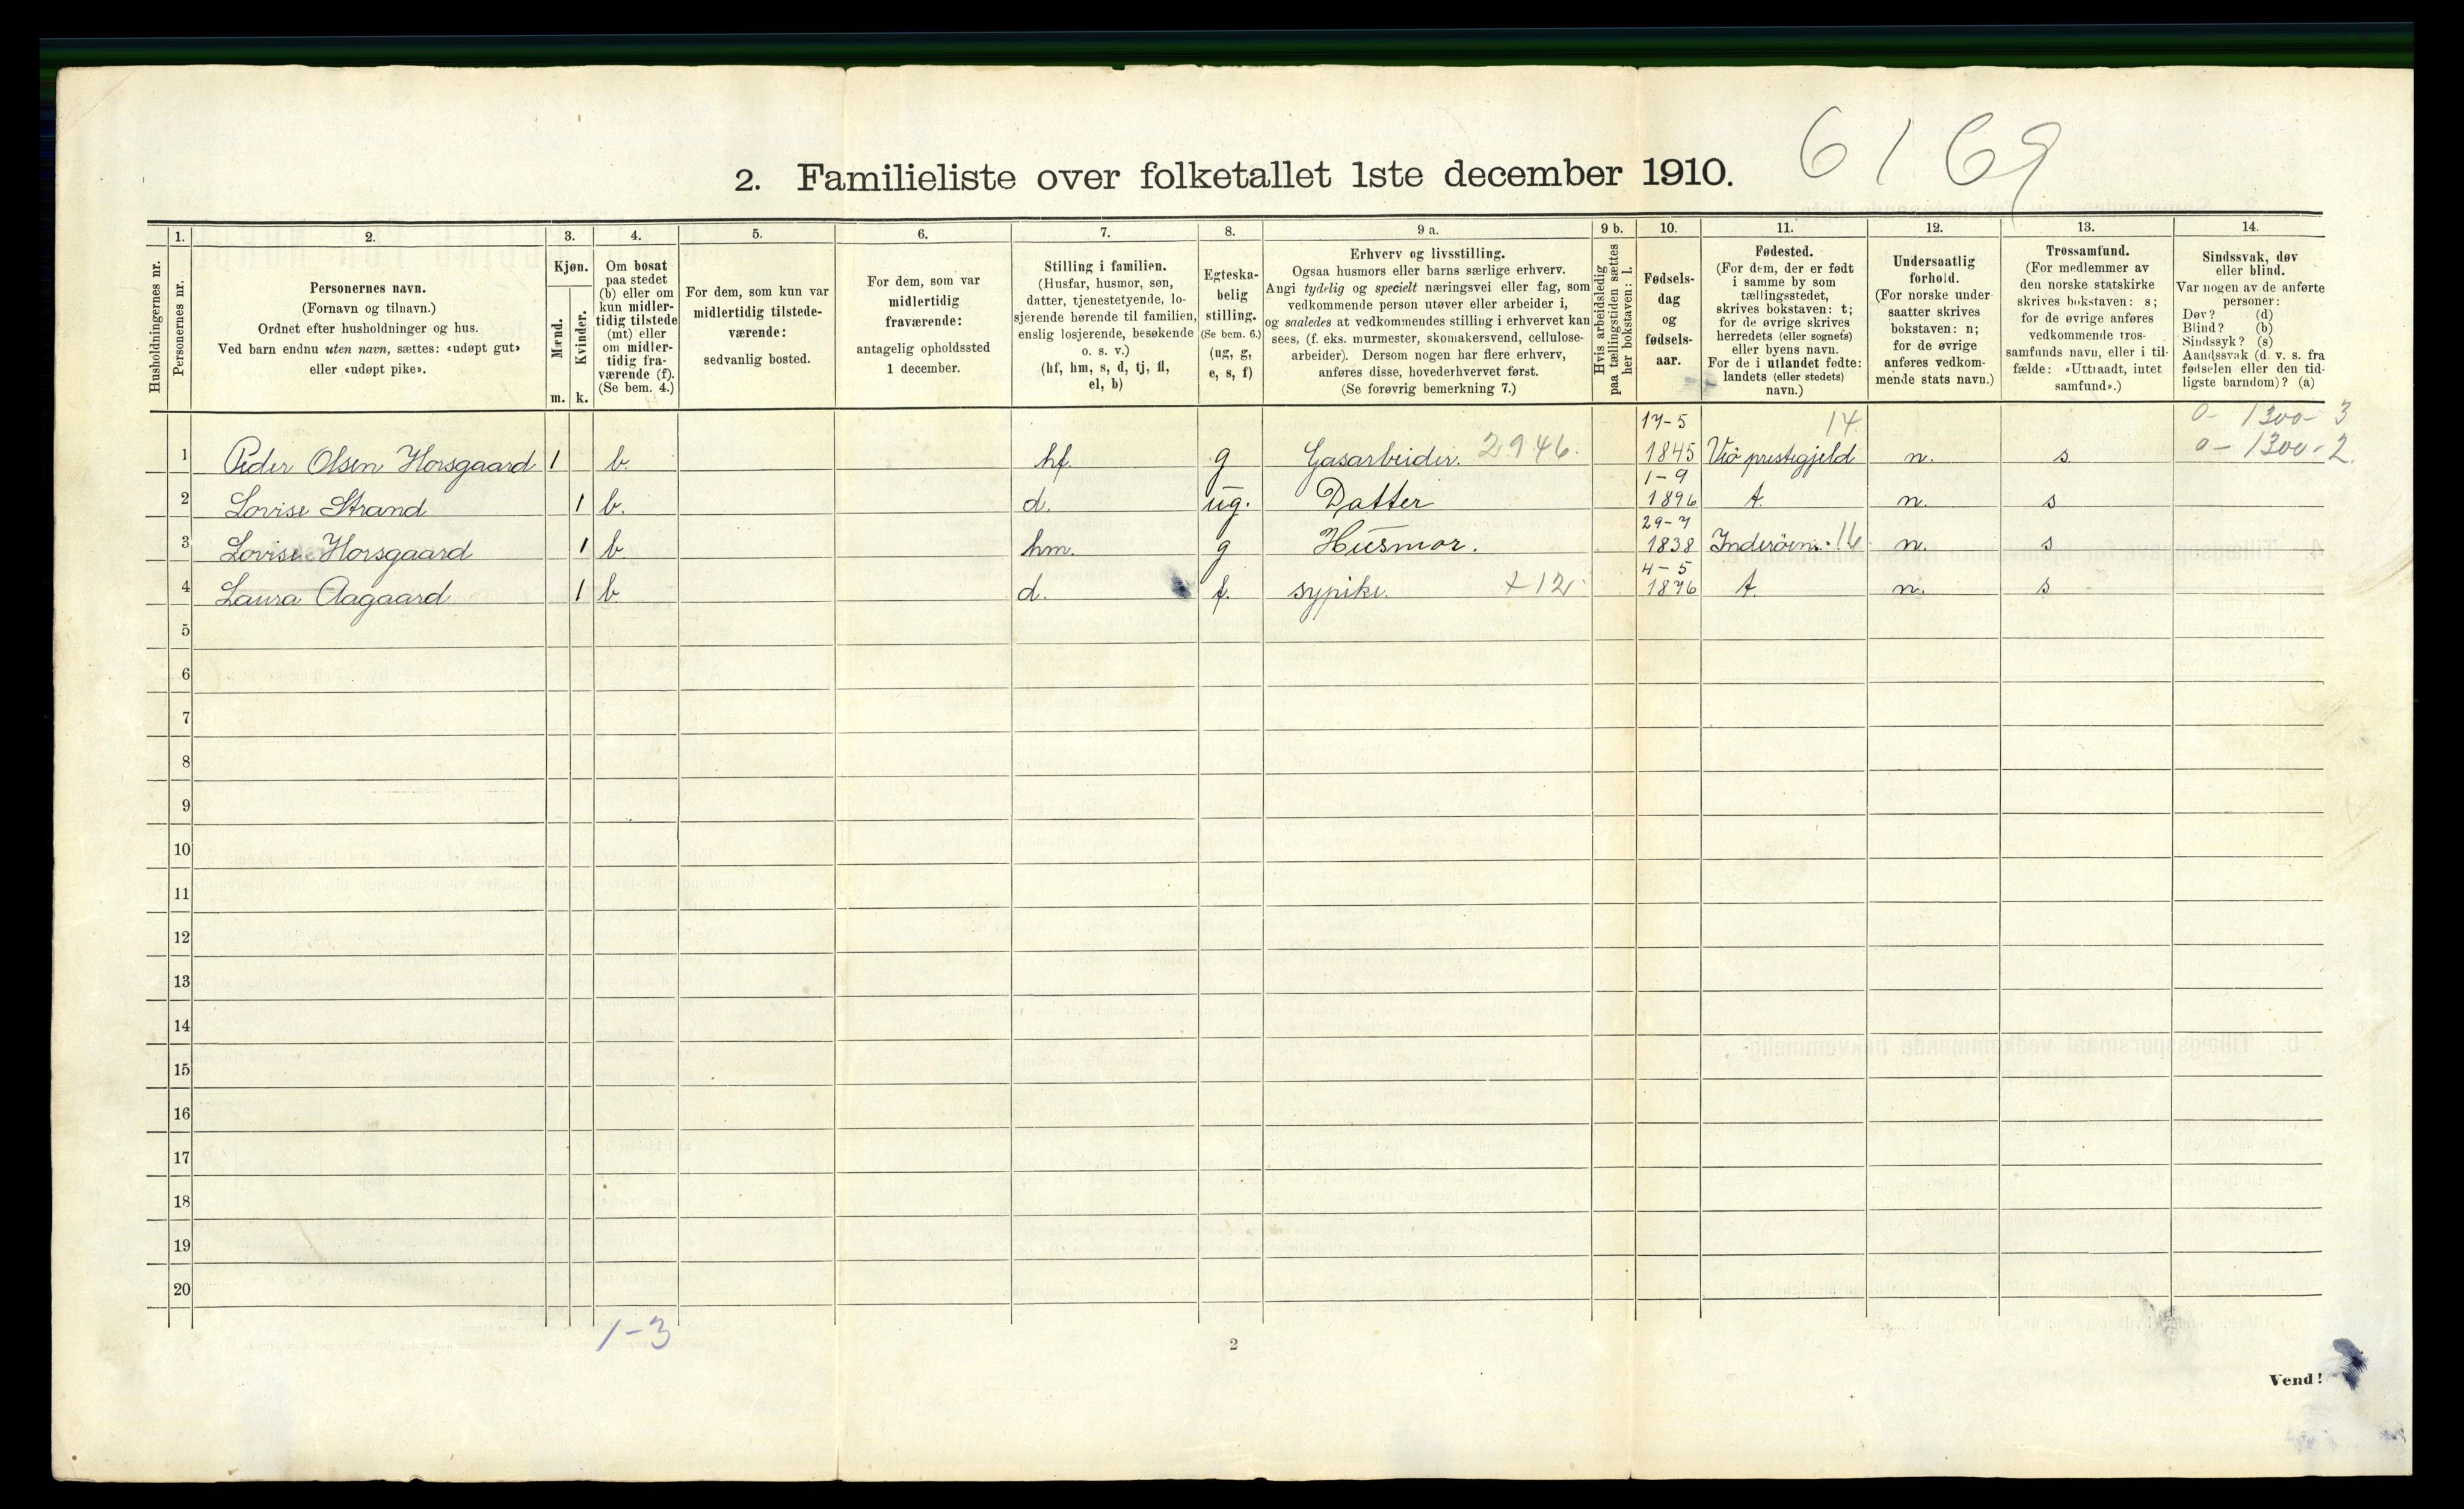 6169
2. Familieliste over folketallet 1ste december 1910.
Husholdningernes nr.
1. Personernes nr.
2. Personernes navn.
(Fornavn og tilnavn.)
Ordnet efter husholdninger og hus.
Ved barn endnu uten navn, sættes: «udøpt gut»
eller «udøpt pike».
3. Kjøn.
Mænd. Kvinder.
m. k.
4. Om bosat
paa stedet
(b) eller om
kun midler-
tidig tilstede
(mt) eller
om midler-
tidig fra-
værende (f).
(Se bem. 4.)
5. For dem, som kun var
midlertidig tilstede-
værende:
sedvanlig bosted.
6. For dem, som var
midlertidig
fraværende:
antagelig opholdssted
1 december.
7. Stilling i familien.
(Husfar, husmor, søn,
datter, tjenestetyende, lo-
sjerende hørende til familien,
enslig losjerende, besøkende
o. s. v.)
(hf, hm, s, d, tj, fl,
el, b)
8. Egteska-
belig
stilling.
(Se bem. 6.)
(ug, g,
e, s, f)
9 a. Erhverv og livsstilling.
Ogsaa husmors eller barns særlige erhverv.
Angi tydelig og specielt næringsvei eller fag, som
vedkommende person utøver eller arbeider i,
og saaledes at vedkommendes stilling i erhvervet kan
sees, (f. eks. murmester, skomakersvend, cellulose-
arbeider). Dersom nogen har flere erhverv,
anføres disse, hovederhvervet først.
(Se forøvrig bemerkning 7.)
9 b. Hvis arbeidsledig
paa tællingstiden sættes
her bokstaven: l.
10. Fødsels-
dag
og
fødsels-
aar.
11. Fødested.
(For dem, der er født
i samme by som
tællingsstedet,
skrives bokstaven: t;
for de øvrige skrives
herredets (eller sognets)
eller byens navn.
For de i utlandet fødte:
landets (eller stedets)
navn.)
12. Undersaatlig
forhold.
(For norske under-
saatter skrives
bokstaven: n;
for de øvrige
anføres vedkom-
mende stats navn.)
13. Trossamfund.
(For medlemmer av
den norske statskirke
skrives bokstaven: s;
for de øvrige anføres
vedkommende tros-
samfunds navn, eller i til-
fælde: «Uttraadt, intet
samfund».)
14. Sindssvak, døv
eller blind.
Var nogen av de anførte
personer:
Døv? (d)
Blind? (b)
Sindssyk? (s)
Aandssvak (d. v. s. fra
fødselen eller den tid-
ligste barndom)? (a)
17-5 14 0-1300-3
1 Peder Olsen Horsgaard 1 b. hf. g Gasarbeider. 2946. 1845 Viö prestegjeld n. s. 0-1300-2.
1-9
2 Lovise Strand 1 b. d. ug. Datter 1896 t. n. s
29-7
3 Lovise Horsgaard 1 b. hm. g Husmor. 1838 Inderöen. 16 n. s
4-5
4 Laura Aagaard 1 b d. f. sypike. +12 1876 t. n. s
5
6
7
8
9
10
11
12
13
14
15
16
17
18
19
20
1-3
2
Vend!